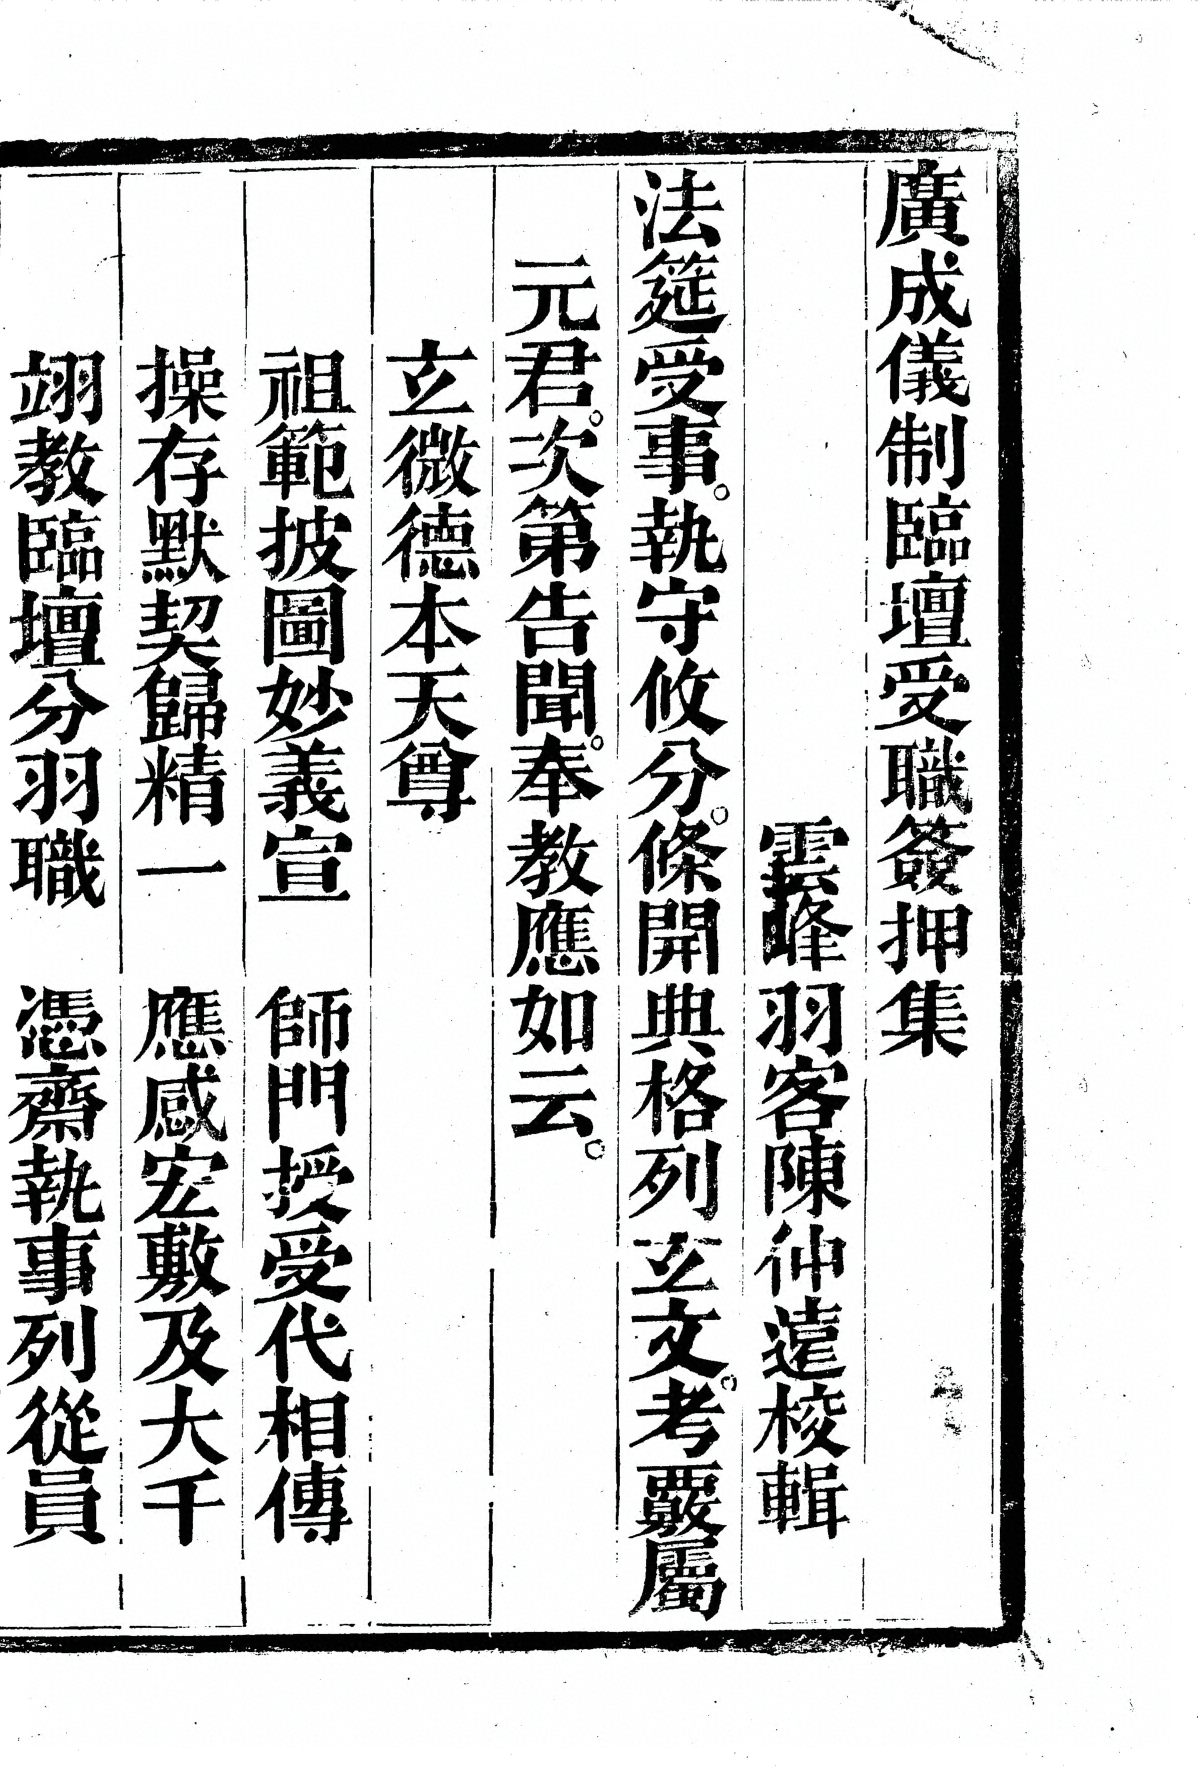 廣成儀制臨壇受職簽押集
雲峰羽客陳仲遠校輯
法筵受事。執守攸分。條開典格列玄文。考覈屬
元君。次第告聞。奉教應如云。
玄微德本天尊
祖範披圖妙義宣　師門授受代相傳
操存默契歸精一　應感宏敷及大千
翊教臨壇分羽職　憑齋執事列從員